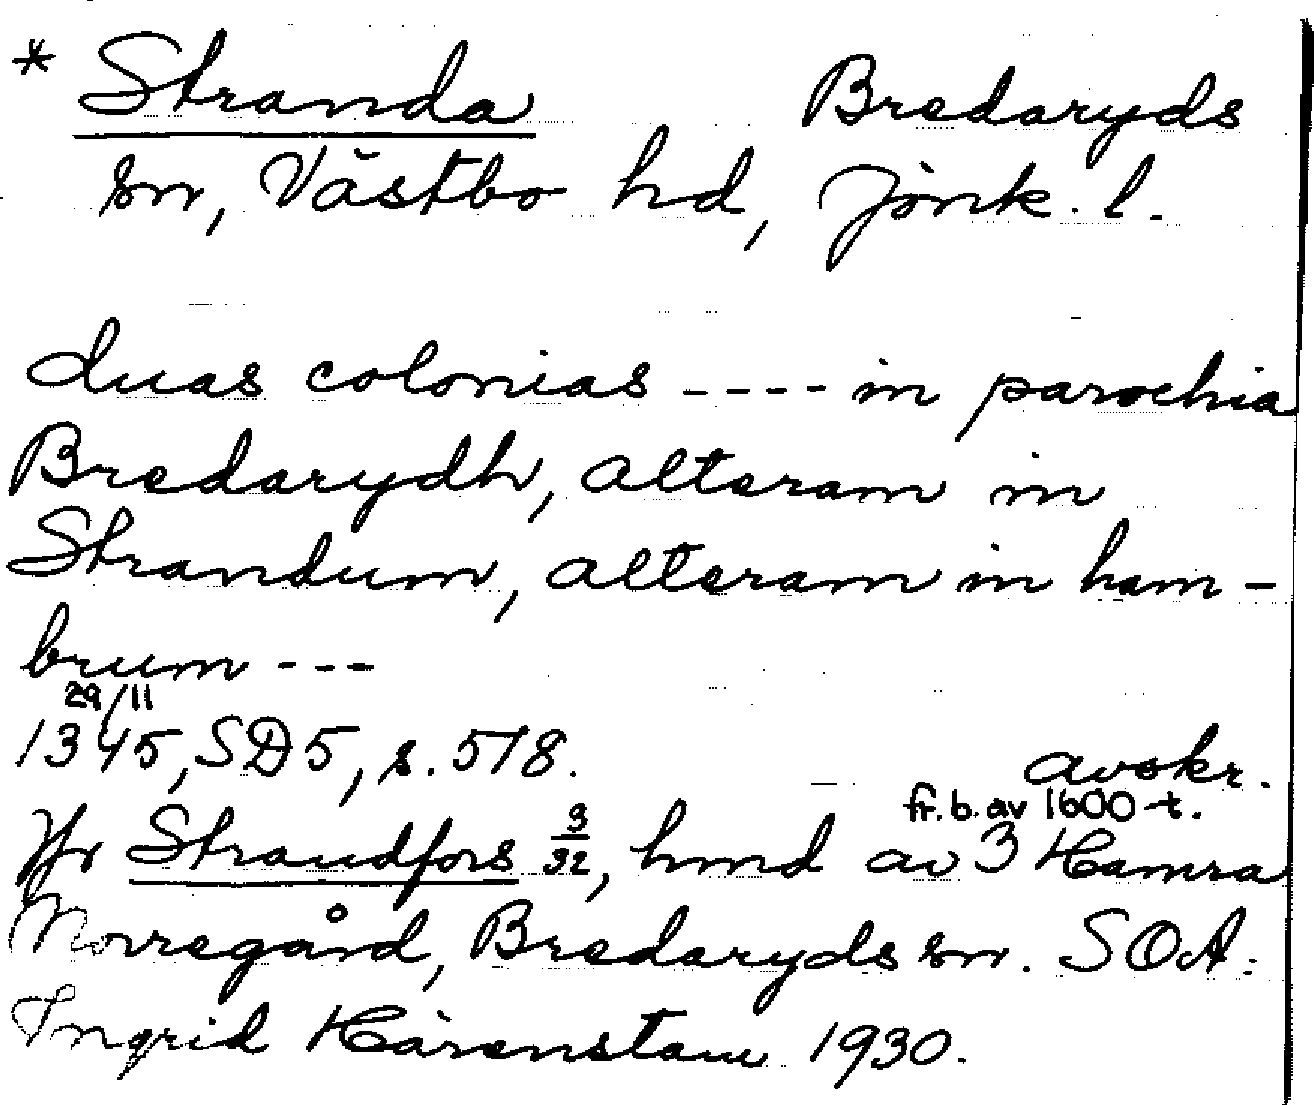 * Stranda Bredaryds
sn, Västbo hd, Jönk. l.
duas colonias ---- in parochia
Bredarydh, alteram in
Strandum, alteram in ham-
brum ---
29/11
1345, SD5, s. 518. avskr.
fr. b. av 1600-t.
Jfr Strandfors 3/32, hmd av 3 Hamra
Norregård, Bredaryds sn. SOA.
Ingrid Härenstam 1930.